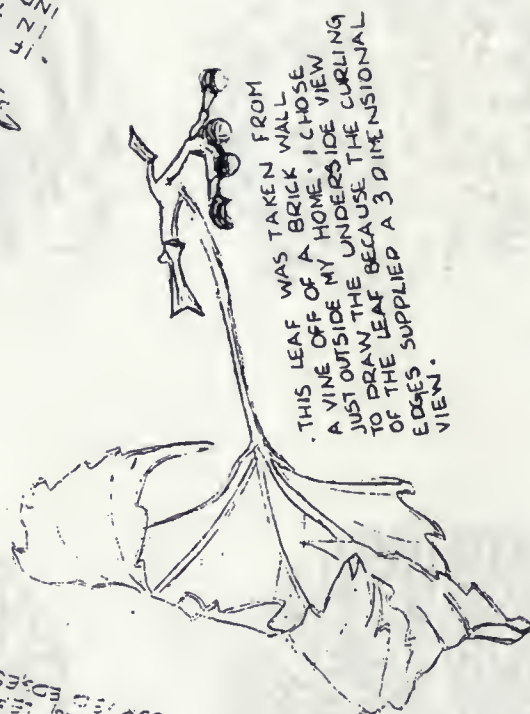 . THIS LEAF WAS TAKEN FROM
A VINE OFF OF A BRICK WALL
JUST OUTSIDE MY HOME. I CHOSE
TO DRAW THE UNDERSIDE VIEW
OF THE LEAF BECAUSE THE CURLING
EDGES SUPPLIED A 3 DIMENSIONAL
VIEW.